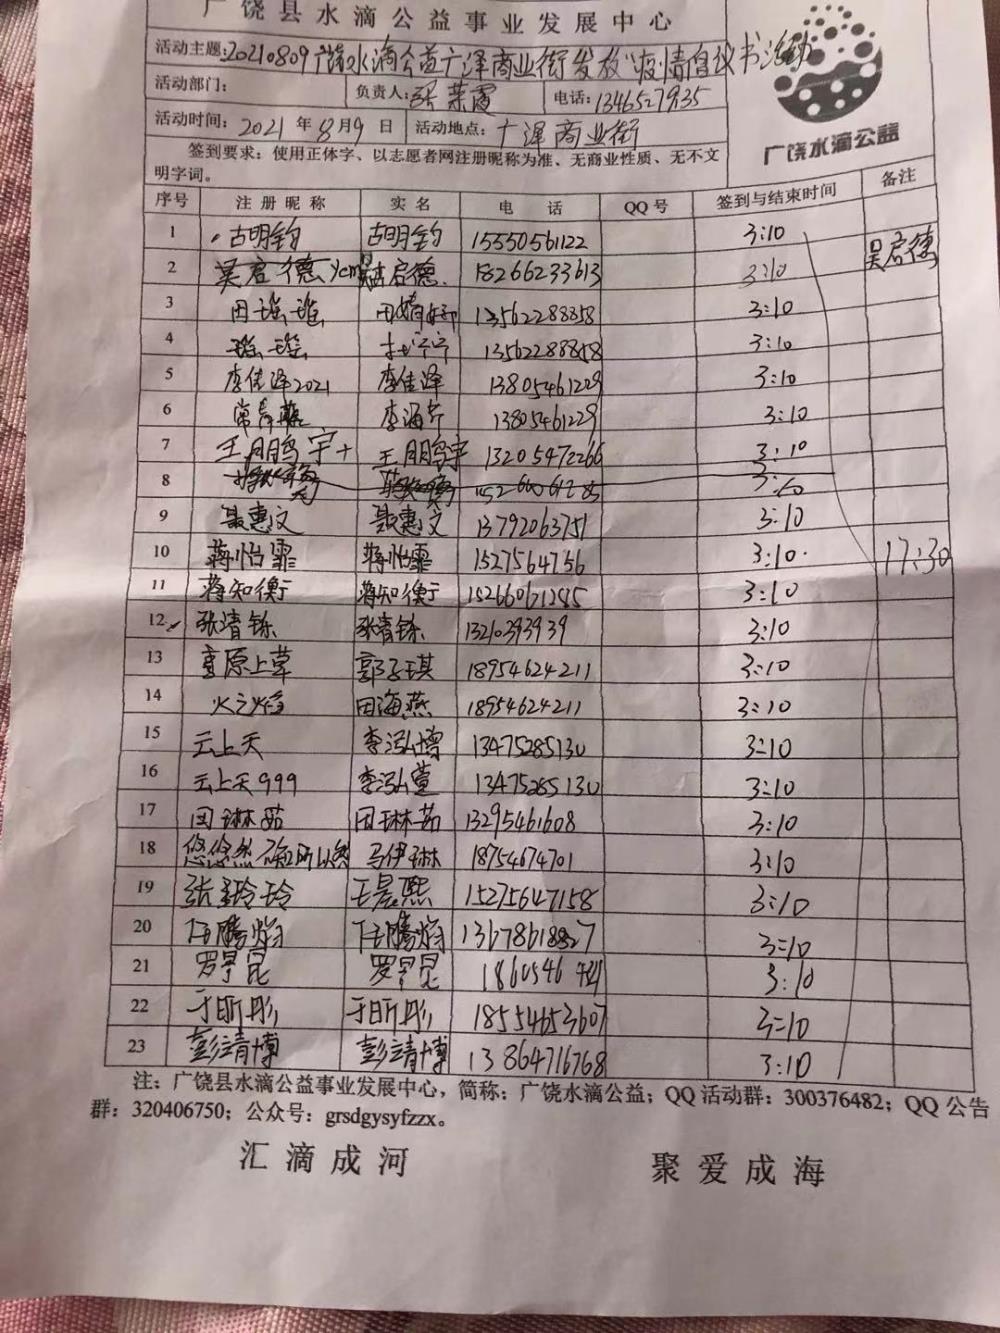 广饶县水滴公益事业发展中心
活动主题:20210809广饶水滴公益广泽商业街发放"疫情倡议书活动
活动部门: 负责人:张荣霞 电话:13465279935
活动时间: 2021 年 8月9 日 活动地点: 广泽商业街
签到要求：使用正体字、以志愿者网注册昵称为准、无商业性质、无不文
明字词。
广饶水滴公益
序号 注册昵称 实名 电 话 QQ号 签到与结束时间 备注
1 古明钧 古明钧 15550561122 3:10
2 吴启德 启德 18266233613 3:10 吴启德
3 田瑶瑶 田 13562288858 3:10
4 瑶瑶 宁宁 13562288858 3:10
5 李佳泽2021 李佳泽 13805461229 3:10
6 常春藤 李海芹 13805461229 3:10
7 王朋鹏宇+ 王朋鹏宇 13205472266 3:10
8
9 聂惠文 聂惠文 13792063751 3:10
10 蒋怡霏 蒋怡霏 1527564756 3:10 17:30
11 蒋知衡 蒋知衡 15266061285 3:10
12 张清铄 张清铄 13210393939 3:10
13 原上草 郭子琪 18954624211 3:10
14 火之焰 田海燕 18954624211 3:10
15 云上天 李泓博 13475285130 3:10
16 云上天999 李泓萱 13475285130 3:10
17 田琳茹 田琳茹 13295461608 3:10
18 悠悠然 马伊琳 18754674701 3:10
19 张玲玲 王晨熙 15275647158 3:10
20 伍腾焰 伍腾焰 13678618827 3:10
21 罗昆 罗昆 1860546 3:10
22 于昕彤 于昕彤 18554653607 3:10
23 彭靖博 彭靖博 13864716768 3:10
注：广饶县水滴公益事业发展中心，简称：广饶水滴公益；QQ活动群：300376482；QQ公告
群：320406750；公众号：grsdgysyfzzx。
汇滴成河 聚爱成海